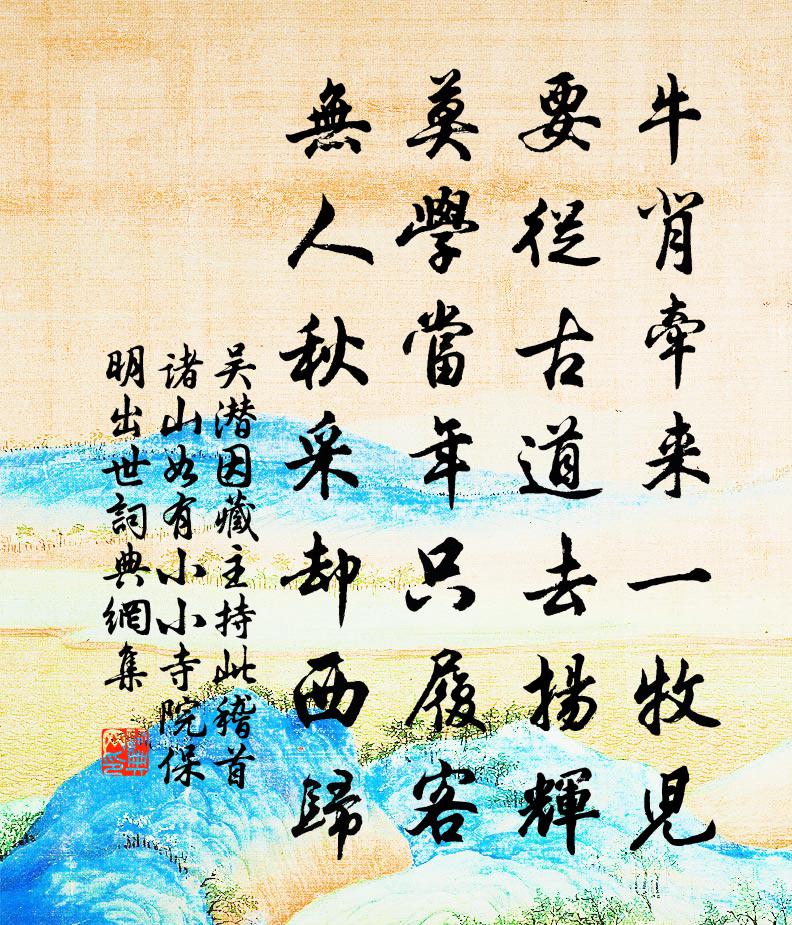 牛背牽来一牧児
要従古道去揚輝
莫學當年只履客
無人秋采却西歸
吴潜因藏主持此稽首
诸山如有小小寺院保
明出世詞典網集